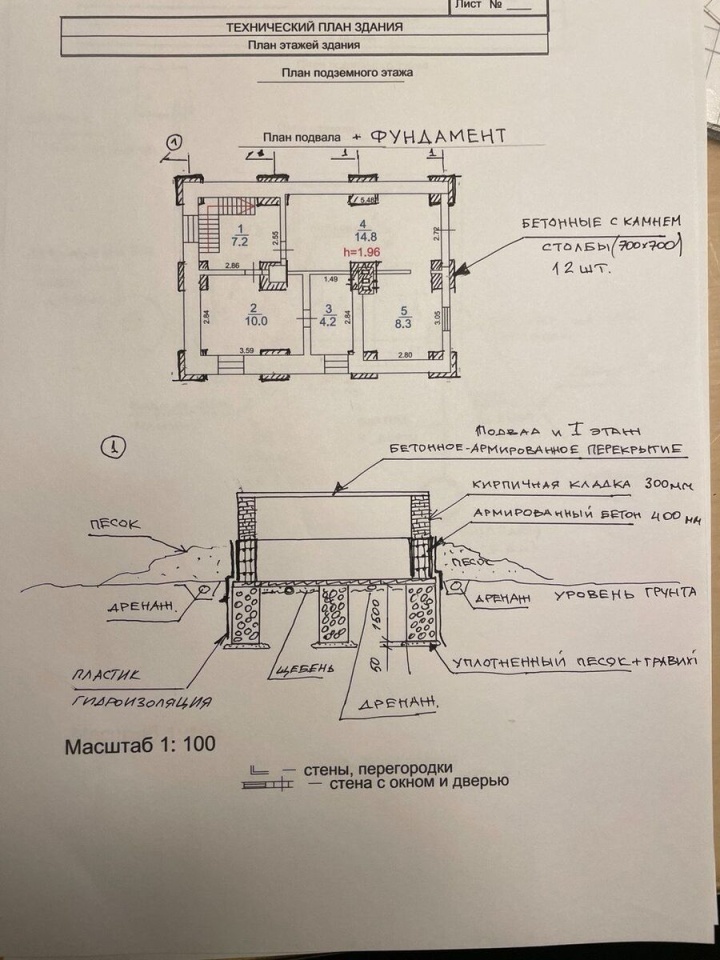 Лист № ___
ТЕХНИЧЕСКИЙ ПЛАН ЗДАНИЯ
План этажей здания
План подземного этажа
План подвала + ФУНДАМЕНТ
1
1
1
5.48
1
7.2
2.55
4
14.8
h=1.96
2.72
БЕТОННЫЕ С КАМНЕМ
СТОЛБЫ (700х700)
12 ШТ.
2.86
1.49
2
10.0
2.84
3
4.2
2.84
5
8.3
3.05
3.59
2.80
1
ПОДВАЛ И I ЭТАЖ
БЕТОННОЕ-АРМИРОВАННОЕ ПЕРЕКРЫТИЕ
КИРПИЧНАЯ КЛАДКА 300мм
АРМИРОВАННЫЙ БЕТОН 400 мм
ПЕСОК
ПЕСОК
ДРЕНАЖ.
ДРЕНАЖ
УРОВЕНЬ ГРУНТА
1500
50
ЩЕБЕНЬ
УПЛОТНЕННЫЙ ПЕСОК+ГРАВИЙ
ПЛАСТИК
ГИДРОИЗОЛЯЦИЯ
ДРЕНАЖ.
Масштаб 1: 100
— стены, перегородки
— стена с окном и дверью